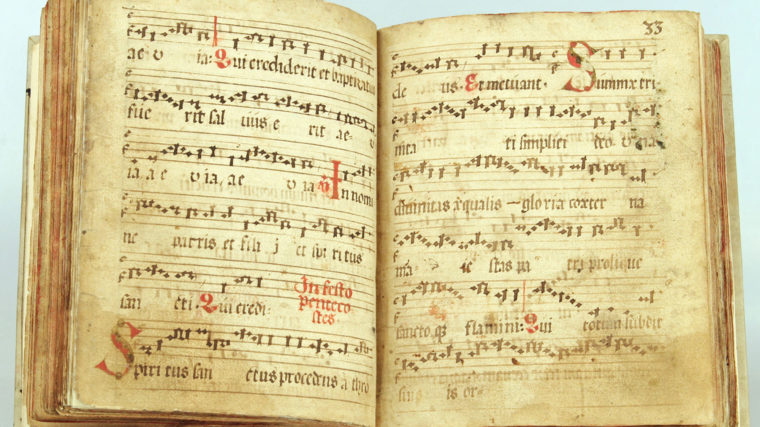 ae v ia: Qui crediderit et baptizatus
fue rit sal vus e rit ae v
ia a e v ia, ae v ia. In nomi
ne patris et fili j et spi ri tus
san cti. Qui credi
In festo
penteco
stes
Spiri tus san ctus procedens a thro
33
de us Et metuant. Summæ tri
nita ti simplici deo v na
divinitas æqualis gloria coæter na
ma ie stas pa tri prolique
sancto que flamini: Qui totum subdit
su is or